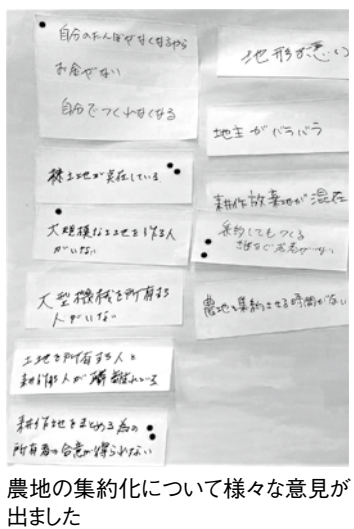 自分のたんぼがなくなるから
お金がない
自分でつくれなくなる
土地が点在している
大規模な土地を作る人
がいない
大型機械を所有する
人がいない
土地を所有する人と
耕作する人が離れている
耕作地をまとめる為の
所有者の合意が得られない
地形が悪い
地主がバラバラ
耕作放棄地が混在
集約してもつくる
農地を集約させる時間がない
農地の集約化について様々な意見が
出ました